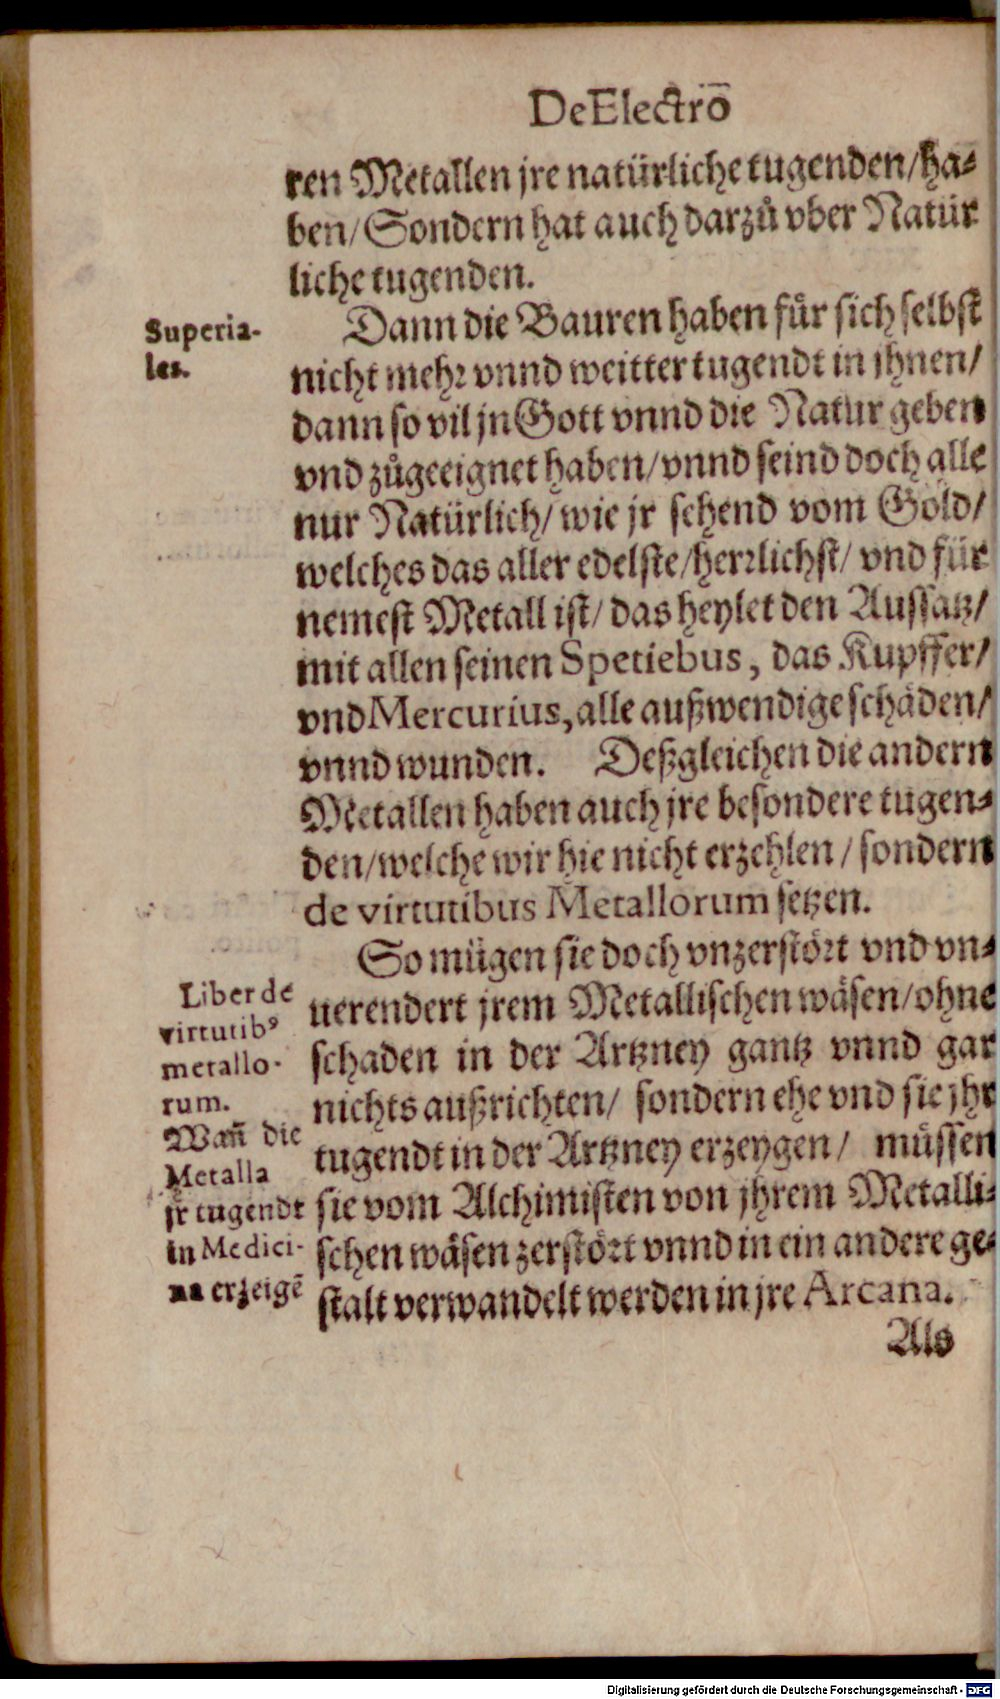 De Electrō
ren Metallen jre natürliche tugenden/ ha⸗
ben/ Sondern hat auch darzů vber Natür
liche tugenden.
Superia-
les.
Dann die Bauren haben für sich selbst
nicht mehr vnnd weitter tugendt in jhnen/
dann so vil jn Gott vnnd die Natur geben
vnd zůgeeignet haben/ vnnd seind doch alle
nur Natürlich/ wie jr sehend vom Gold/
welches das aller edelste/ herrlichst/ vnd für
nemest Metall ist/ das heylet den Aussatz/
mit allen seinen Spetiebus, das Kupffer/
vnd Mercurius, alle außwendige schäden/
vnnd wunden. Deßgleichen die andern
Metallen haben auch jre besondere tugen⸗
den/ welche wir hie nicht erzehlen/ sondern
de virtutibus Metallorum setzen.
So mügen sie doch vnzerstört vnd vn⸗
uerendert jrem Metallischen wäsen/ ohne
schaden in der Artzney gantz vnnd gar
nichts außrichten/ sondern ehe vnd sie jhr
tugendt in der Artzney erzeygen/ müssen
sie vom Alchimisten von jhrem Metalli⸗
schen wäsen zerstört vnnd in ein andere ge⸗
stalt verwandelt werden in jre Arcana.
Liber de
virtutibꝰ
metallo-
rum.
Wañ die
Metalla
jr tugendt
in Medici-
na erzeigẽ
Als
Digitalisierung gefördert durch die Deutsche Forschungsgemeinschaft - DFG